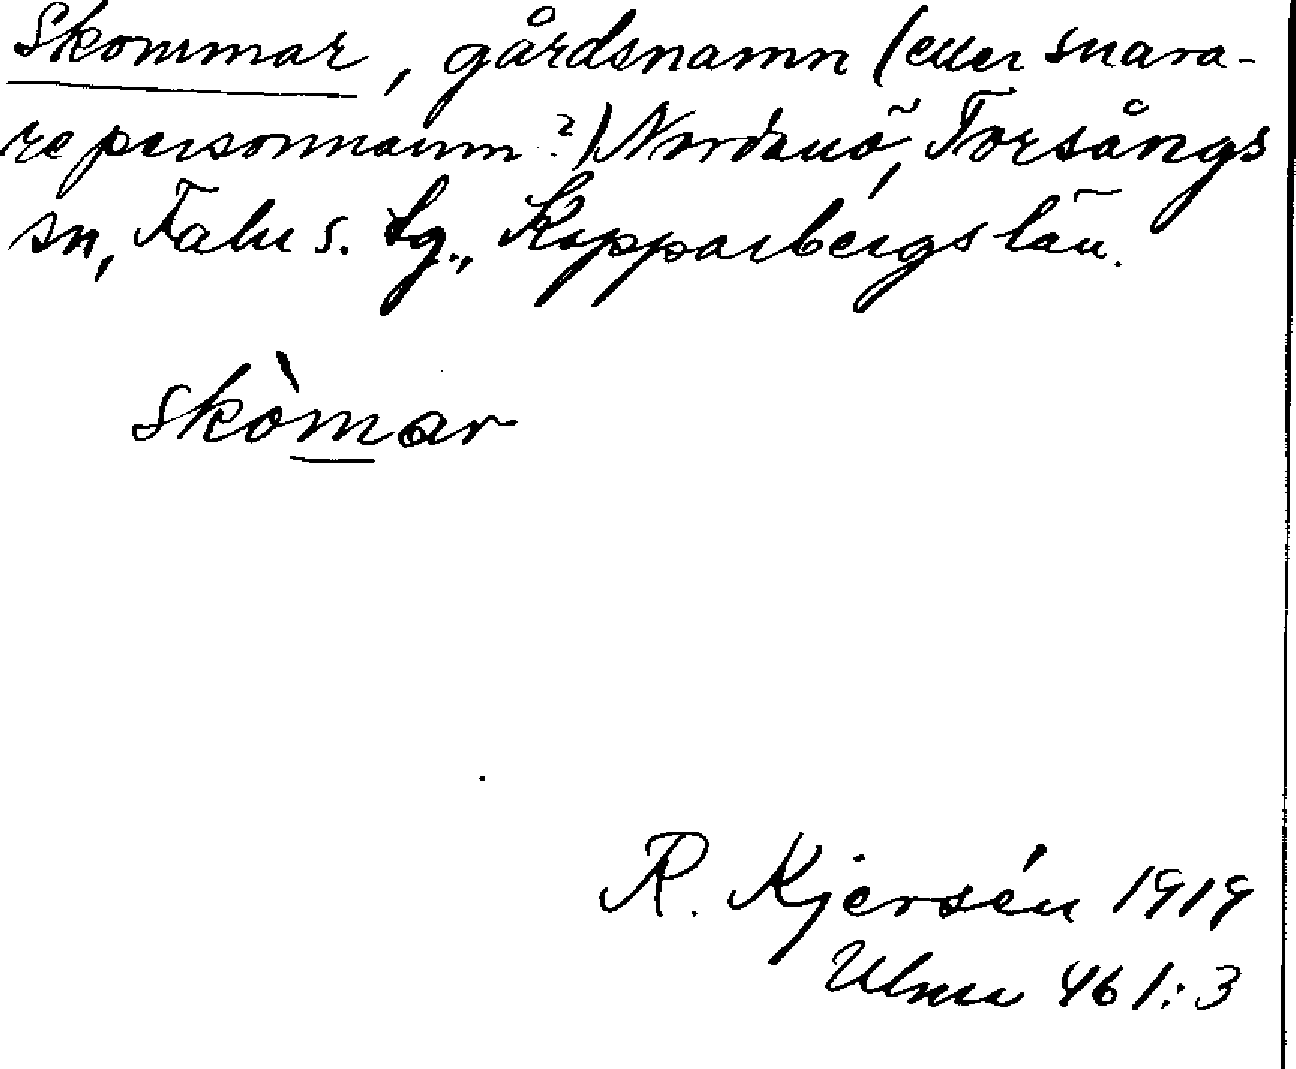 Skommar, gårdsnamn (eller snara-
re personnamn?) Nordanö, Torsångs
sn, Falu s. tg., Kopparbergs län.
skòmar
R. Kjersén 1919
Ulma 461:3